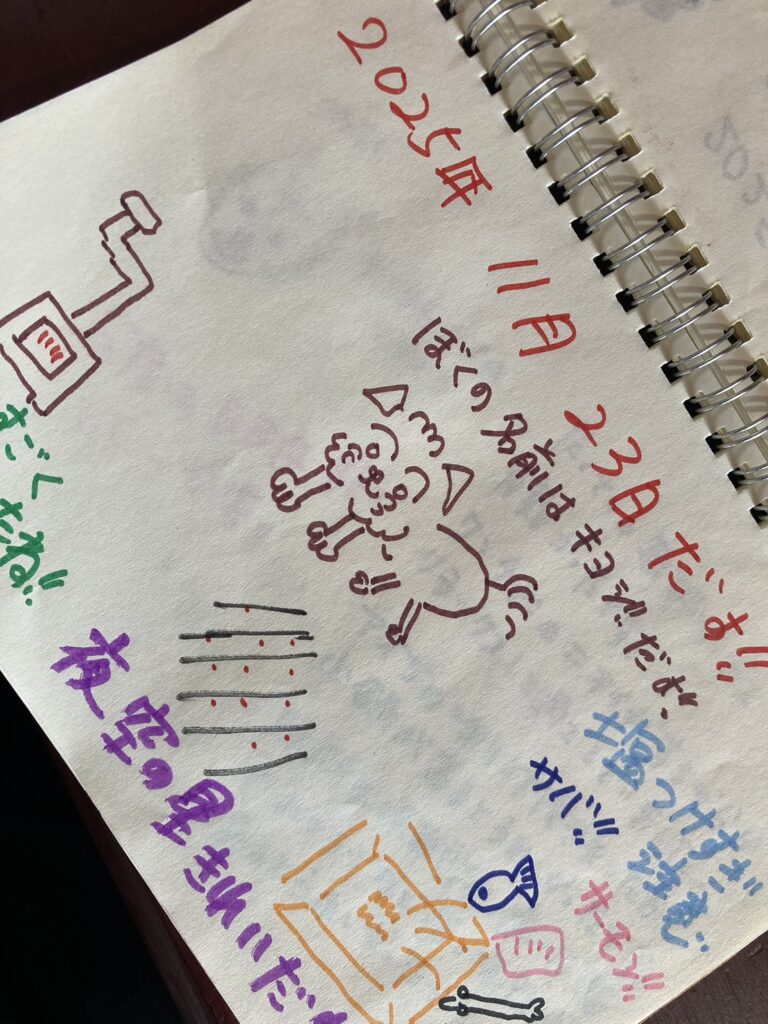 2025年
11月
23日だぉ!!
ぼくの名前はキヨシ"だぉ"、
塩つけすぎ
注意"
サバ"!!
サーモン"
すごく
たね"!!
夜空の星きれいだ